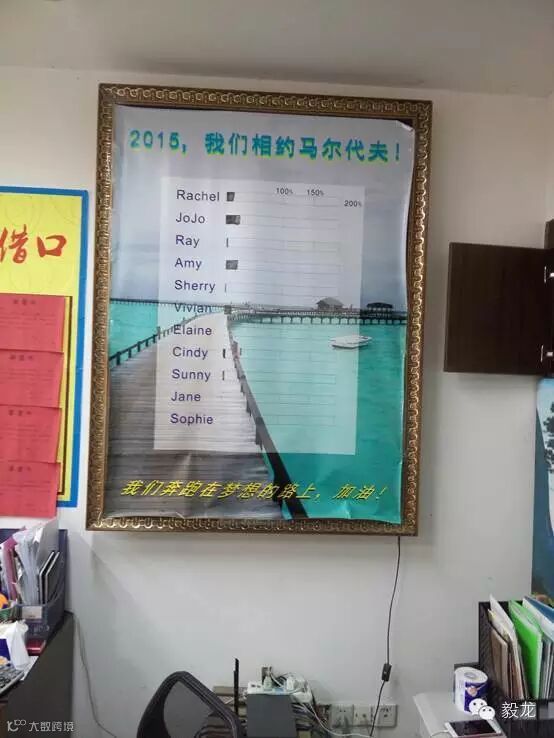 2015, 我们相约马尔代夫!
100% 150%
200%
Rachel
JoJo
Ray
Amy
Sherry
Vivian
Elaine
Cindy
Sunny
Jane
Sophie
我们奔跑在梦想的路上，加油!
借口
大数跨境
毅龙